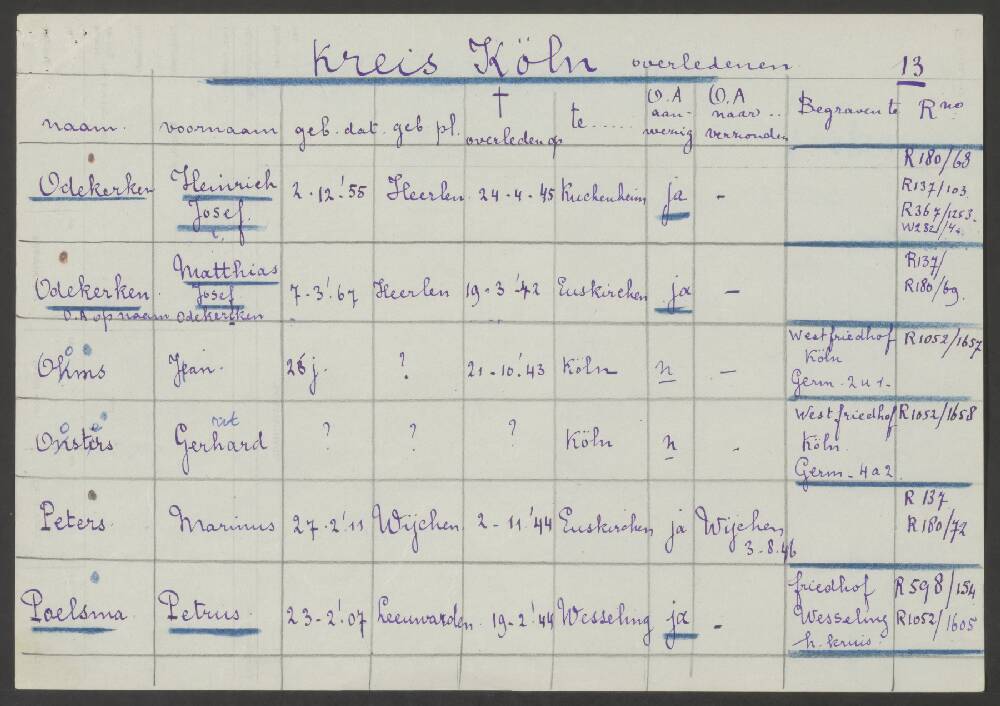 Kreis Köln overledenen 13
naam. voornaam geb. dat. geb pl. † overleden op te ...... O.A aan- wezig O.A naar .. verzonden Begraven te R no
Odekerken Heinrich Josef. 2-12-'55 Heerlen 24-4-45 Kuchenheim ja - R180/68
R137/103.
R367/1253.
Odekerken Matthias Josef 7-3-'67 Heerlen 19-3-'42 Euskirchen ja - R137/
R180/69.
O.A op naam Odekerken
Ohms Jean. ? 21-10-'43 Köln n - Westfriedhof Köln Germ. 2u1- R1052/1657
Gerhard ? ? ? Köln n - Westfriedhof Köln. Germ-4a2 R1052/1658
Peters. Marinus 27-2-'11 Wijchen 2-11-'44 Euskirchen ja Wijchen 3-8-46 R 137
R180/72
Poelsma Petrus. 23-2-'07 Leeuwarden 19-2-'44 Wesseling ja - friedhof Wesseling h. kruis. R598/154
R1052/1605